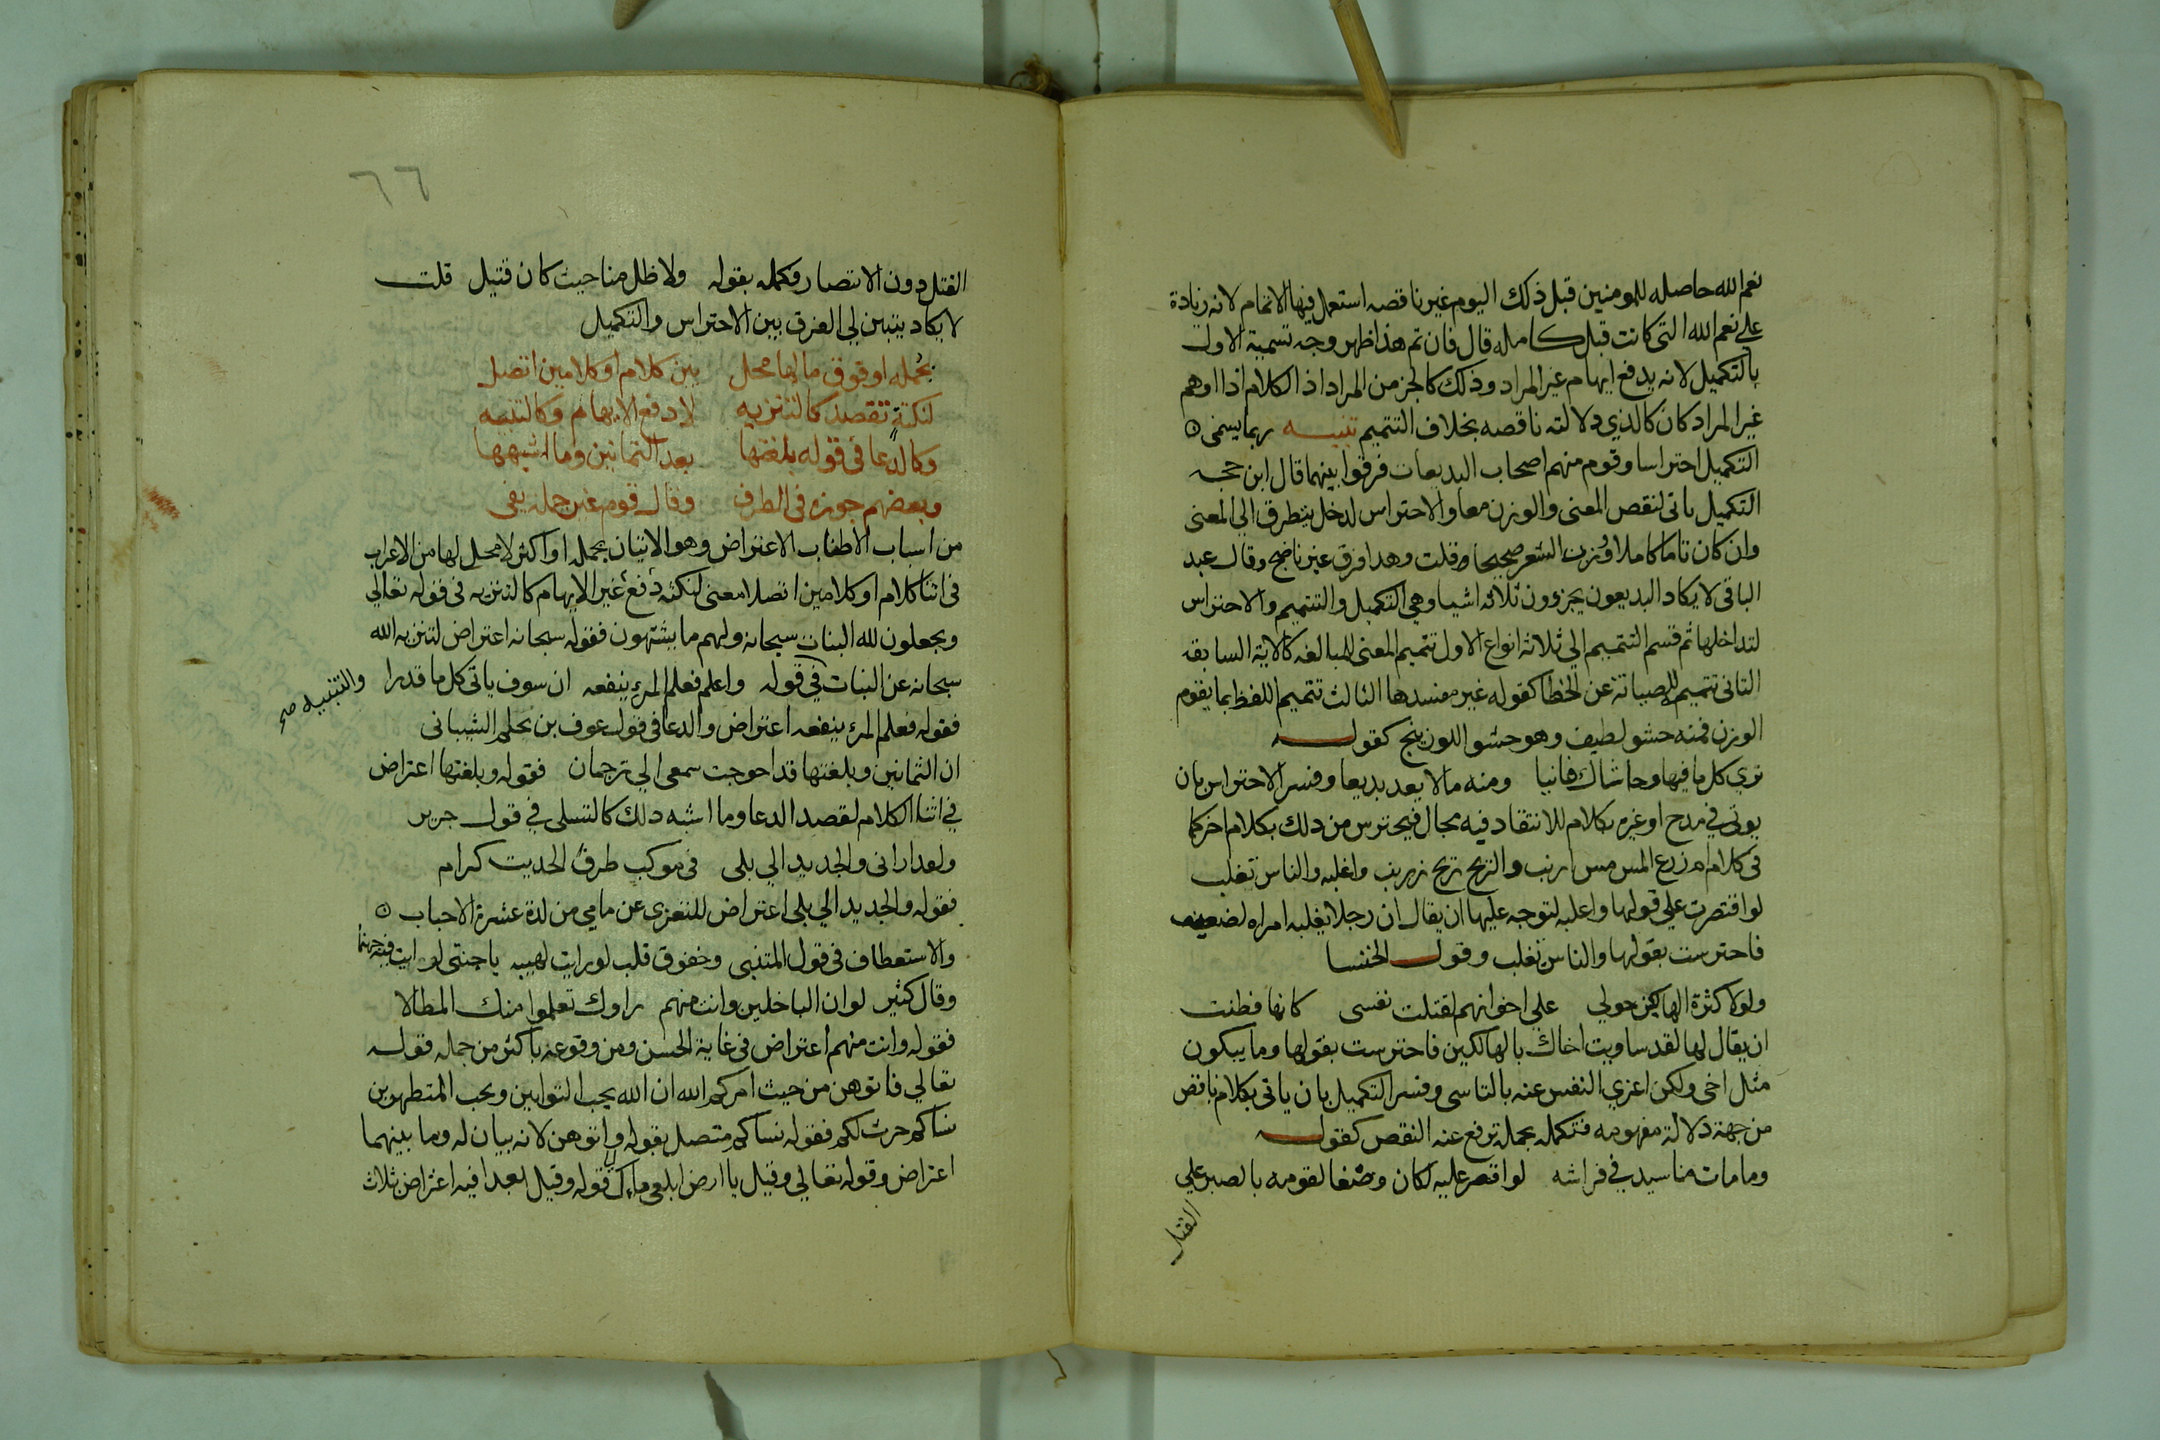 نعم الله حاصله للمومنين قبل ذلك اليوم غير ناقصه استعمل فيها الاتمام لانه زيادة
على نعم الله التي كانت قبل كامله قال فان تم هذا ظهر وجه تسمية الاول
بالتكميل لانه يدفع ايهام غير المراد وذلك كالجز من المراد اذ الكلام اذا اوهم
غير المراد كان كالذي دلالته ناقصه بخلاف التتميم تنبيه ربما يسمى
التكميل احتراسا وقوم منهم اصحاب البديعات فرقوا بينهما قال ابن حجه
التكميل ياتى لنقص المعنى والوزن معا والاحتراس لدخل يتطرق الي المعنى
وان كان تاما كاملا ووزن الشعر صحيحا قلت وهدا فرق غير ناضج وقال عبد
الباقى لا يكاد البديعون يحررون ثلاثه اشيا وهي التكميل والتتميم والاحتراس
لتداخلها ثم قسم التتميم الي ثلاثه انواع الاول تتميم المعنى للمبالغه كالاية السابقه
الثانى تتميم للصيانة عن الخطا كقوله غير مفسدها الثالث تتميم اللفظ بما يقوم
الوزن فمنه حشو لطيف وهو حشو اللوزينج كقوله
نري كل ما فيها وحاشاك فانيا ومنه مالا يعد بديعا وفسر الاحتراس بان
يوتي في مدح او غيره بكلام للانتقاد فيه مجال فيحترس من دلك بكلام اخر كما
فى كلام ام زرع المس مس ارنب والريح ريح زرنب واغلبه والناس تغلب
لو اقتصرت على قولها واغلبه لتوجه عليها ان يقال ان رجلا يغلبه امراه لضعيف
فاحترست بقولها والناس تغلب وقول الخنسا
ولولا كثرة الباكين حولي علي اخوانهم لقتلت نفسى كانها فطنت
ان يقال لها لقد ساويت اخاك بالهالكين فاحترست بقولها وما يبكون
مثل اخى ولكن اعزي النفس عنه بالتاسى وفسر التكميل بان ياتى بكلام ناقص
من جهة دلالة مفهومه فتكمله بجملة ترفع عنه النقص كقوله
وما مات منا سيد في فراشه لو اقتصر عليه لكان وصفا لقومه بالصبر علي
القتل
٦٦
القتل دون الانتصار وكمله بقوله ولا طل منا حيث كان قتيل قلت
لا يكاد يتبين لي الفرق بين الاحتراس والتكميل
بجمله او فوق مالها محل بين كلام او كلامين اتصل
لنكتة تقصد كالتنزيه لا دفع الايهام وكالتنبيه
وكالدعا فى قوله بلغتها بعد الثمانين وما اشبهها
وبعضهم جوزه فى الطرف وقال قوم غير جمله يفى
من اسباب الاطناب الاعتراض وهو الاتيان بجمله او اكثر لا محل لها من الاعراب
فى اثنا كلام او كلامين اتصلا معنى لنكته دفع غير الايهام كالتنزيه فى قوله تعالي
ويجعلون لله البنات سبحانه ولهم ما يشتهون فقوله سبحانه اعتراض لتنزيه الله
سبحانه عن البنات في قوله واعلم فعلم المرء ينفعه ان سوف ياتى كل ما قدرا
والتنبيه صح
فقوله فعلم المرء ينفعه اعتراض والدعا فى قول عوف بن محلم الشيبانى
ان الثمانين وبلغتها قد احوجت سمعى الي ترجمان فقوله وبلغتها اعتراض
في اثنا الكلام لقصد الدعا وما اشبه دلك كالتسلى في قول جرير
ولقد ارانى والجديد الي بلى فى موكب طرف الحديث كرام
فقوله والجديد الي بلى اعتراض للتعزي عن ما مي من لدة عشرة الاحباب
والاستعطاف فى قول المتنبى وخفوق قلب لو رايت لهيبه يا جنتى لرايت فيه جهنما
وقال كثير لو ان الباخلين وانت منهم راوك تعلموا منك المطالا
فقوله وانت منهم اعتراض فى غاية الحسن ومن وقوعه باكثر من جمله قوله
تعالي فاتوهن من حيث امركم الله ان الله يحب التوابين ويحب المتطهرين
نساكم حرث لكم فقوله نساكم متصل بقوله فاتوهن لانه بيان له وما بينهما
اعتراض وقوله تعالي وقيل يا ارض ابلعى ماك قوله وقيل بعدا فيه اعتراض ثلاث